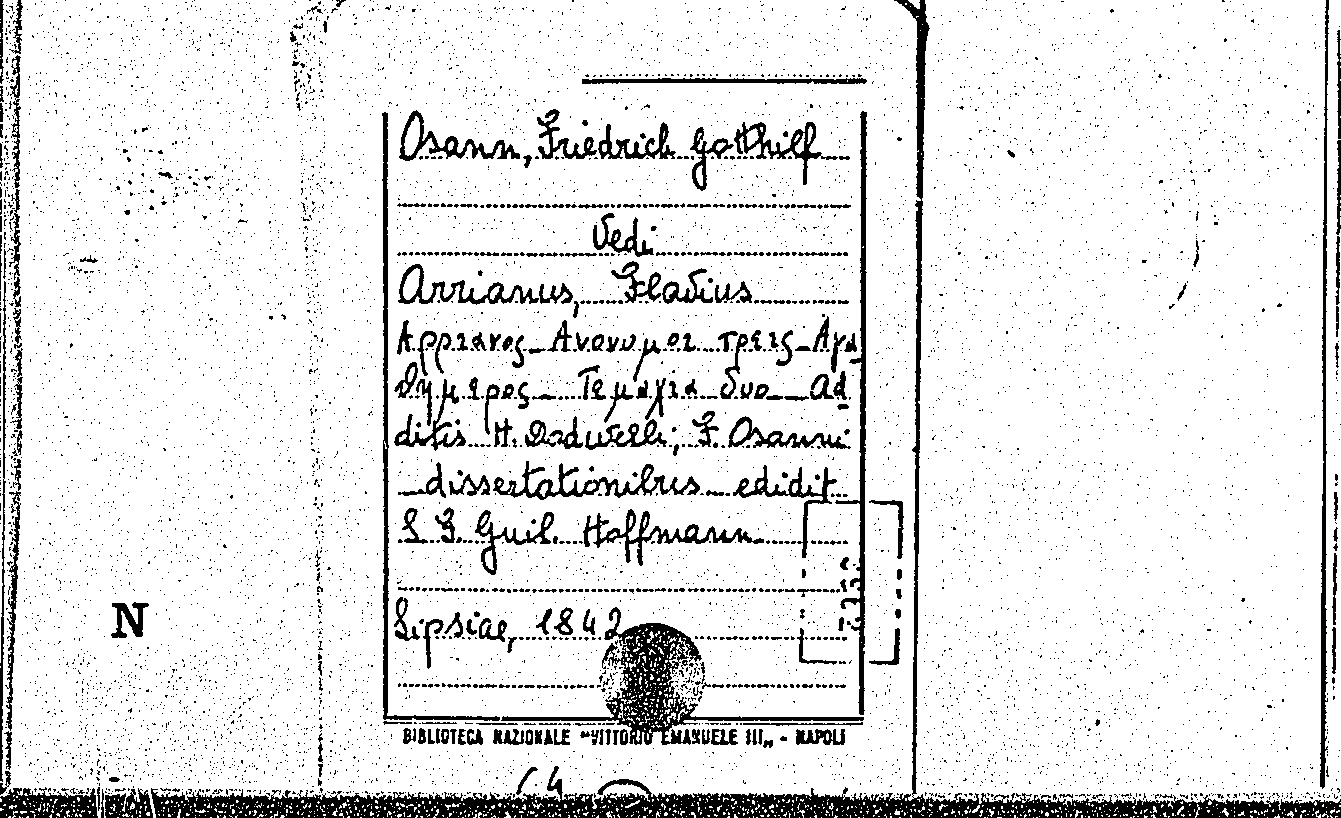 Osann, Friedrich Gotthilf
Vedi
Arrianus, Flavius
Αρριανος_ Ανονυμοι τρεις_ Αγα
θημερος_ Τεμαχια δυο_ Ad
ditis H. Dodwelli; F. Osanni
_dissertationibus_ edidit
S. F. Guil. Hoffmann.
Lipsiae, 1842
N
BIBLIOTECA NAZIONALE "VITTORIO EMANUELE III„ - NAPOLI